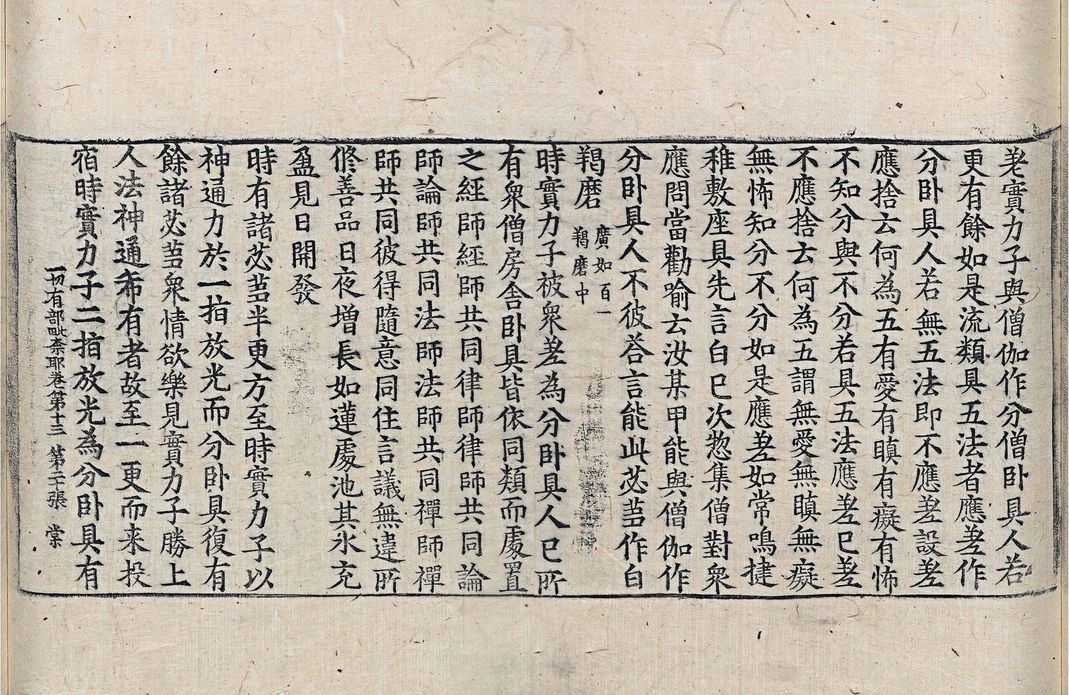 差實力子與僧伽作分僧卧具人若
更有餘如是流類具五法者應差作
分卧具人若無五法即不應差設差
應捨云何為五有愛有瞋有癡有怖
不知分與不分若具五法應差已差
不應捨云何為五謂無愛無瞋無癡
無怖知分不分如是應差如常鳴揵
稚敷座具先言白已次惣集僧對衆
應問當勸喻云汝某甲能與僧伽作
分卧具人不彼荅言能此苾芻作白
羯磨 廣如百一羯磨中
時實力子被衆差為分卧具人已所
有衆僧房舍卧具皆依同類而處置
之經師經師共同律師律師共同論
師論師共同法師法師共同禪師禪
師共同彼得隨意同住言議無違所
修善品日夜增長如蓮處池其水充
盈見日開發
時有諸苾芻半更方至時實力子以
神通力於一指放光而分卧具復有
餘諸苾芻衆情欲樂見實力子勝上
人法神通希有者故至一更而来投
宿時實力子二指放光為分卧具有
一切有部毗奈耶卷第十三 第二十張 棠